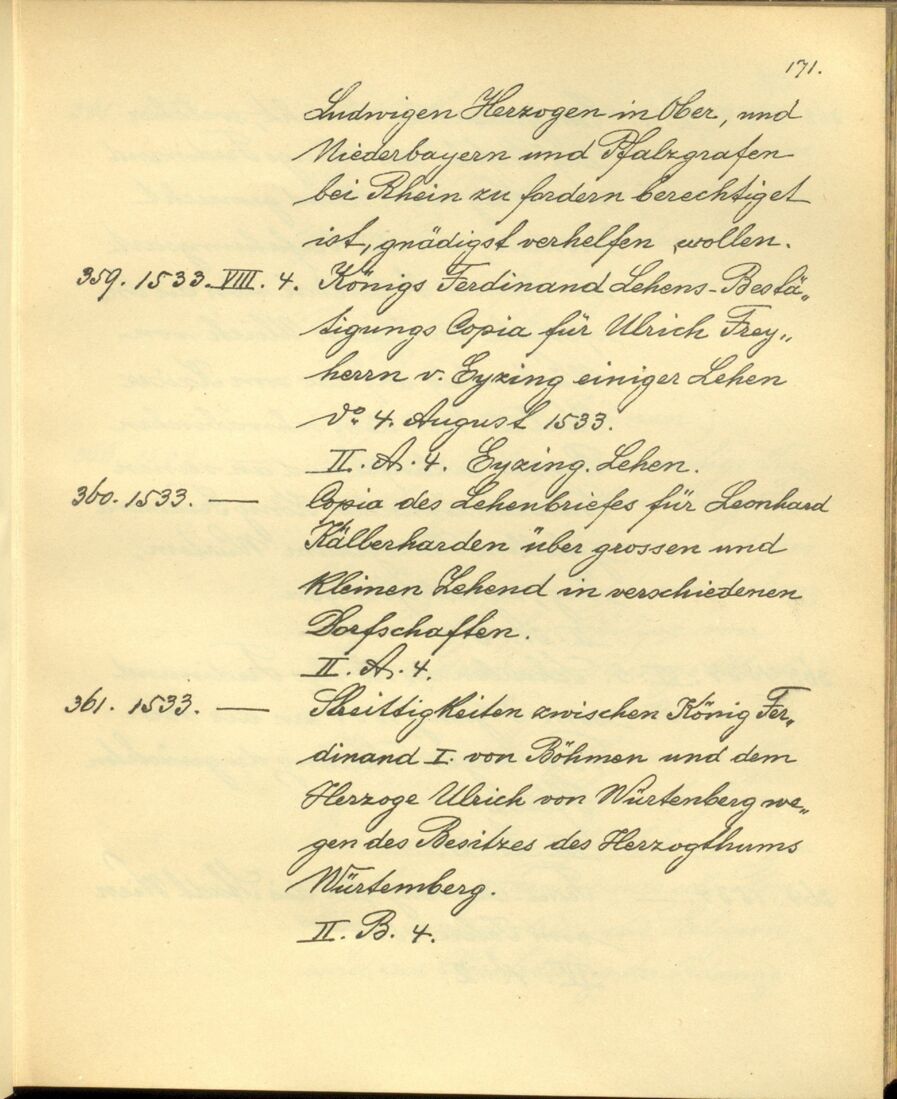 171.
Ludwigen Herzogen in Ober, und
Niederbayern und Pfalzgrafen
bei Rhein zu fordern berechtiget
ist, gnädigst verhelfen wollen.
359. 1533. VIII. 4. Königs Ferdinand Lehens-Bestä„
tigungs Copia für Ulrich Frey„
herrn v. Eyzing einiger Lehen
dº 4. August 1533.
II. A. 4. Eyzing. Lehen.
360. 1533. — Copia des Lehenbriefes für Leonhard
Kälberharden über grossen und
kleinen Zehend in verschiedenen
Dorfschaften.
II. A. 4.
361. 1533. — Streittigkeiten zwischen König Fer„
dinand I. von Böhmen und dem
Herzoge Ulrich von Würtenberg we„
gen des Besitzes des Herzogthums
Würtemberg.
II. B. 4.